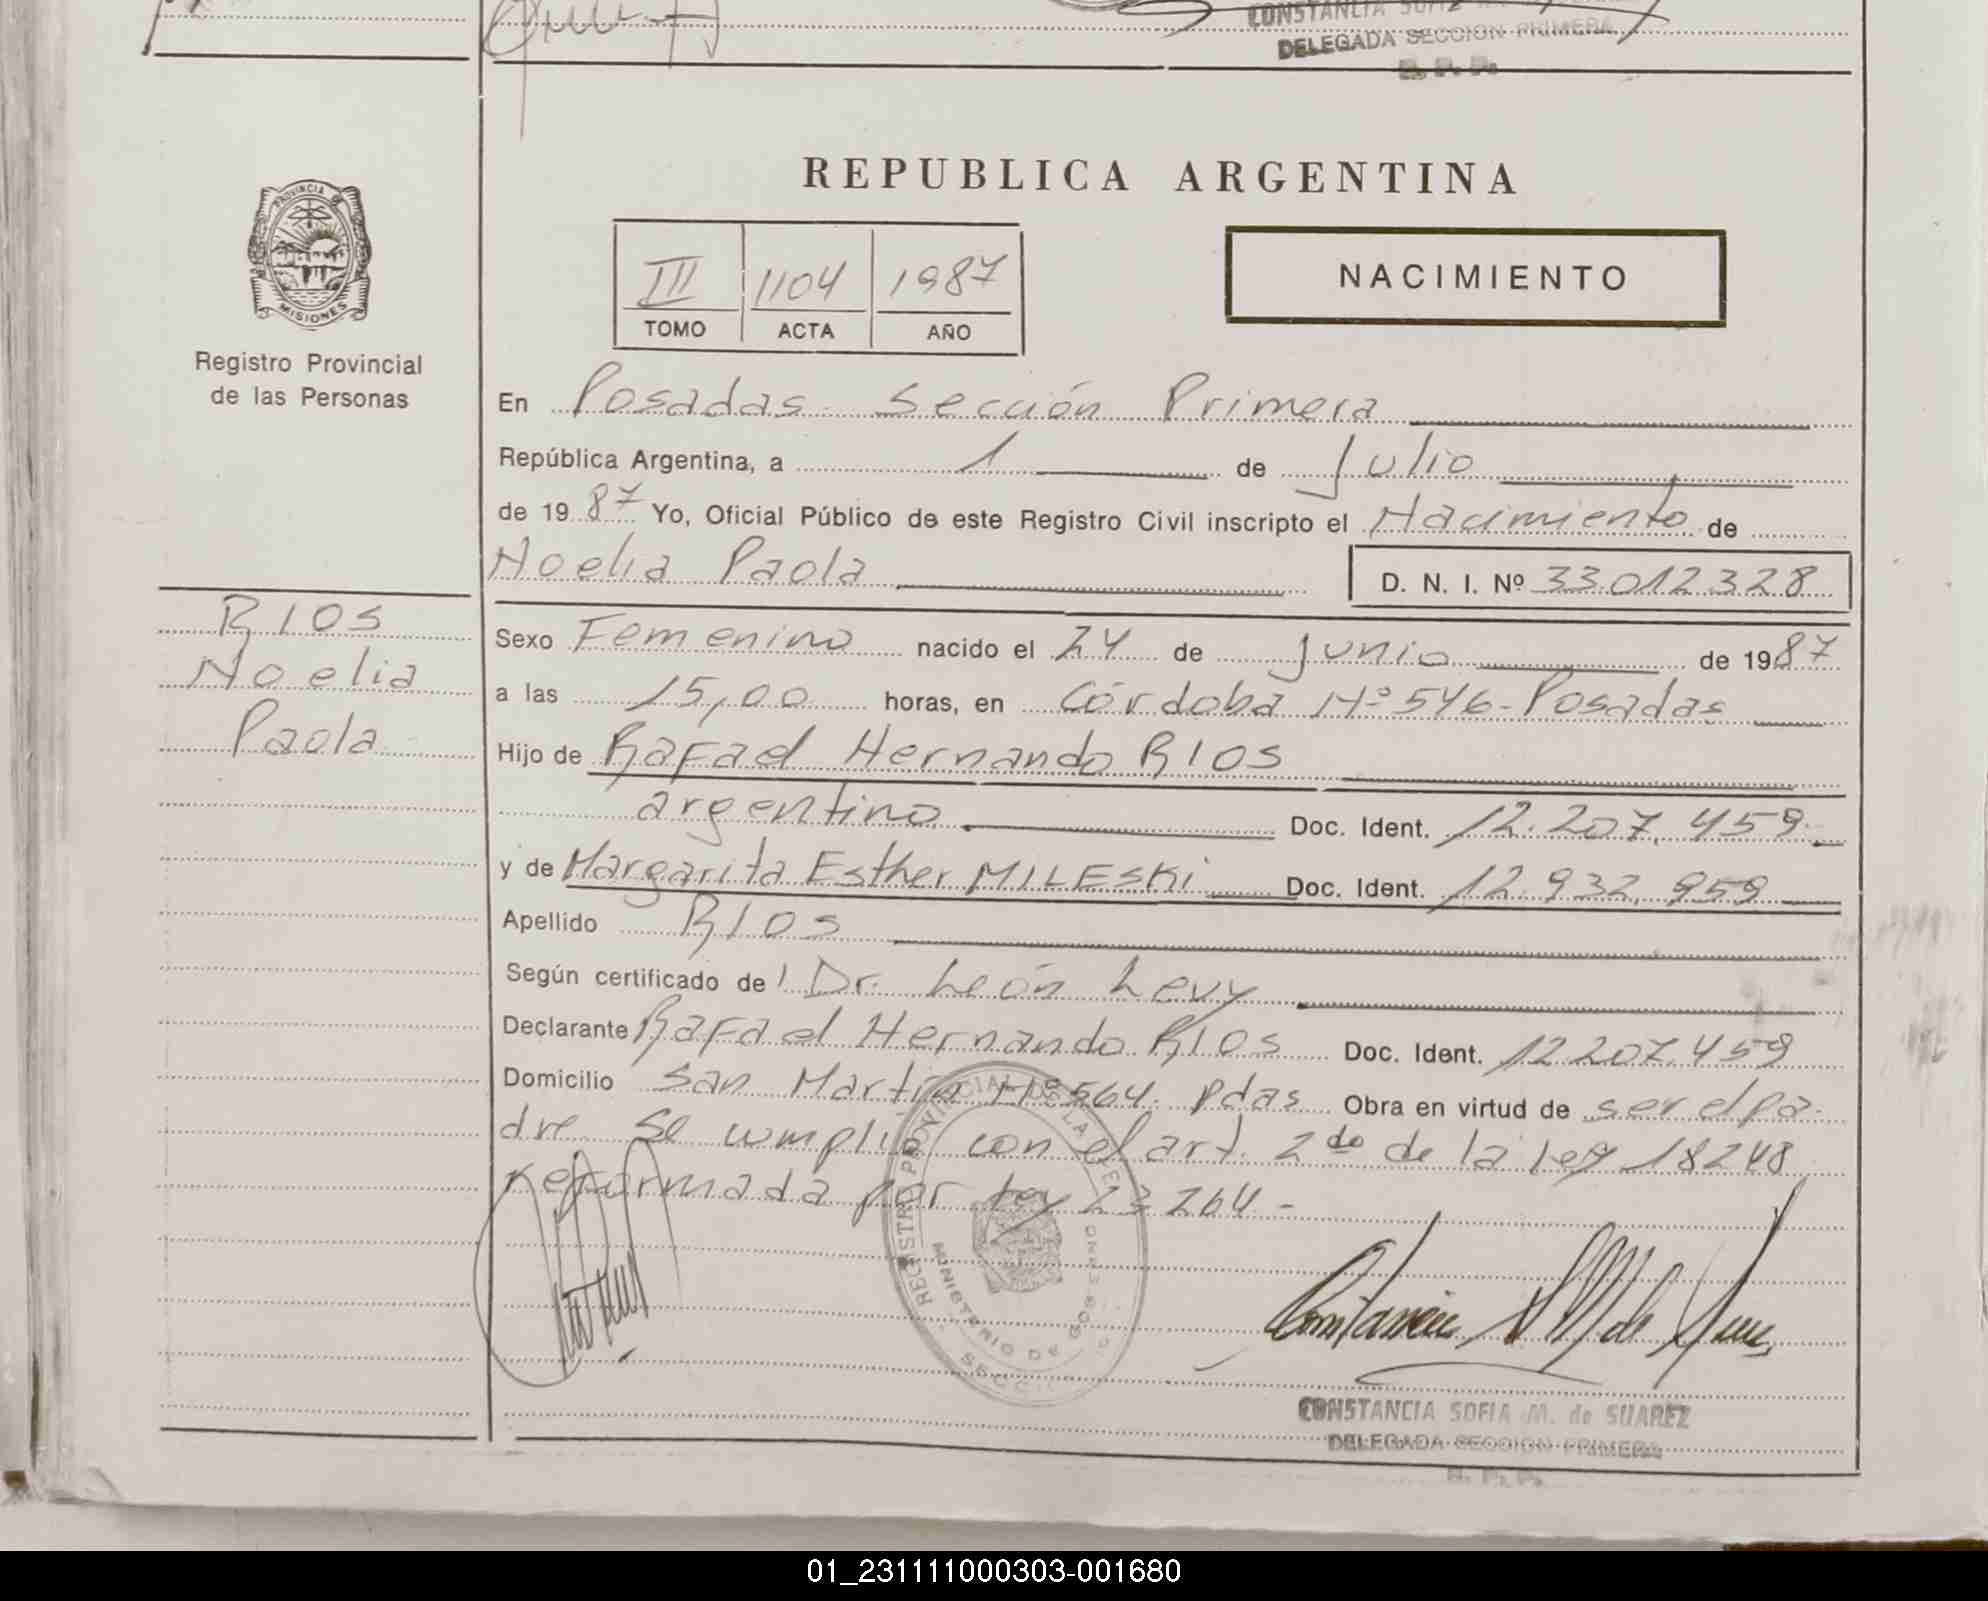 CONSTANCIA SOFIA M. de SUAREZ
DELEGADA SECCION PRIMERA
R. P. P.
PROVINCIA
MISIONES
Registro Provincial
de las Personas
REPUBLICA ARGENTINA
III 1104 1987
TOMO ACTA AÑO
NACIMIENTO
En Posadas - Sección Primera
República Argentina, a 1 de Julio
de 1987 Yo, Oficial Público de este Registro Civil inscripto el Nacimiento de
Noelia Paola D. N. I. Nº 33012328
RIOS
Noelia
Paola
Sexo Femenino nacido el 24 de Junio de 1987
a las 15,00 horas, en Córdoba Nº 546 - Posadas
Hijo de Rafael Hernando RIOS
argentino Doc. Ident. 12.207.459
y de Margarita Esther MILESKI Doc. Ident. 12.932.959
Apellido RIOS
Según certificado de l Dr. León Levy
Declarante Rafael Hernando RIOS Doc. Ident. 12.207.459
Domicilio San Martín Nº 564. Pdas Obra en virtud de ser el pa-
dre. Se cumplió con el art. 2do de la ley 18248
reformada por ley 23264 -
REGISTRO PROVINCIAL DE LAS PE
MINISTERIO DE GOBIERNO
SECCI
CONSTANCIA SOFIA M. de SUAREZ
DELEGADA SECCION PRIMERA
R. P. P.
01_231111000303-001680